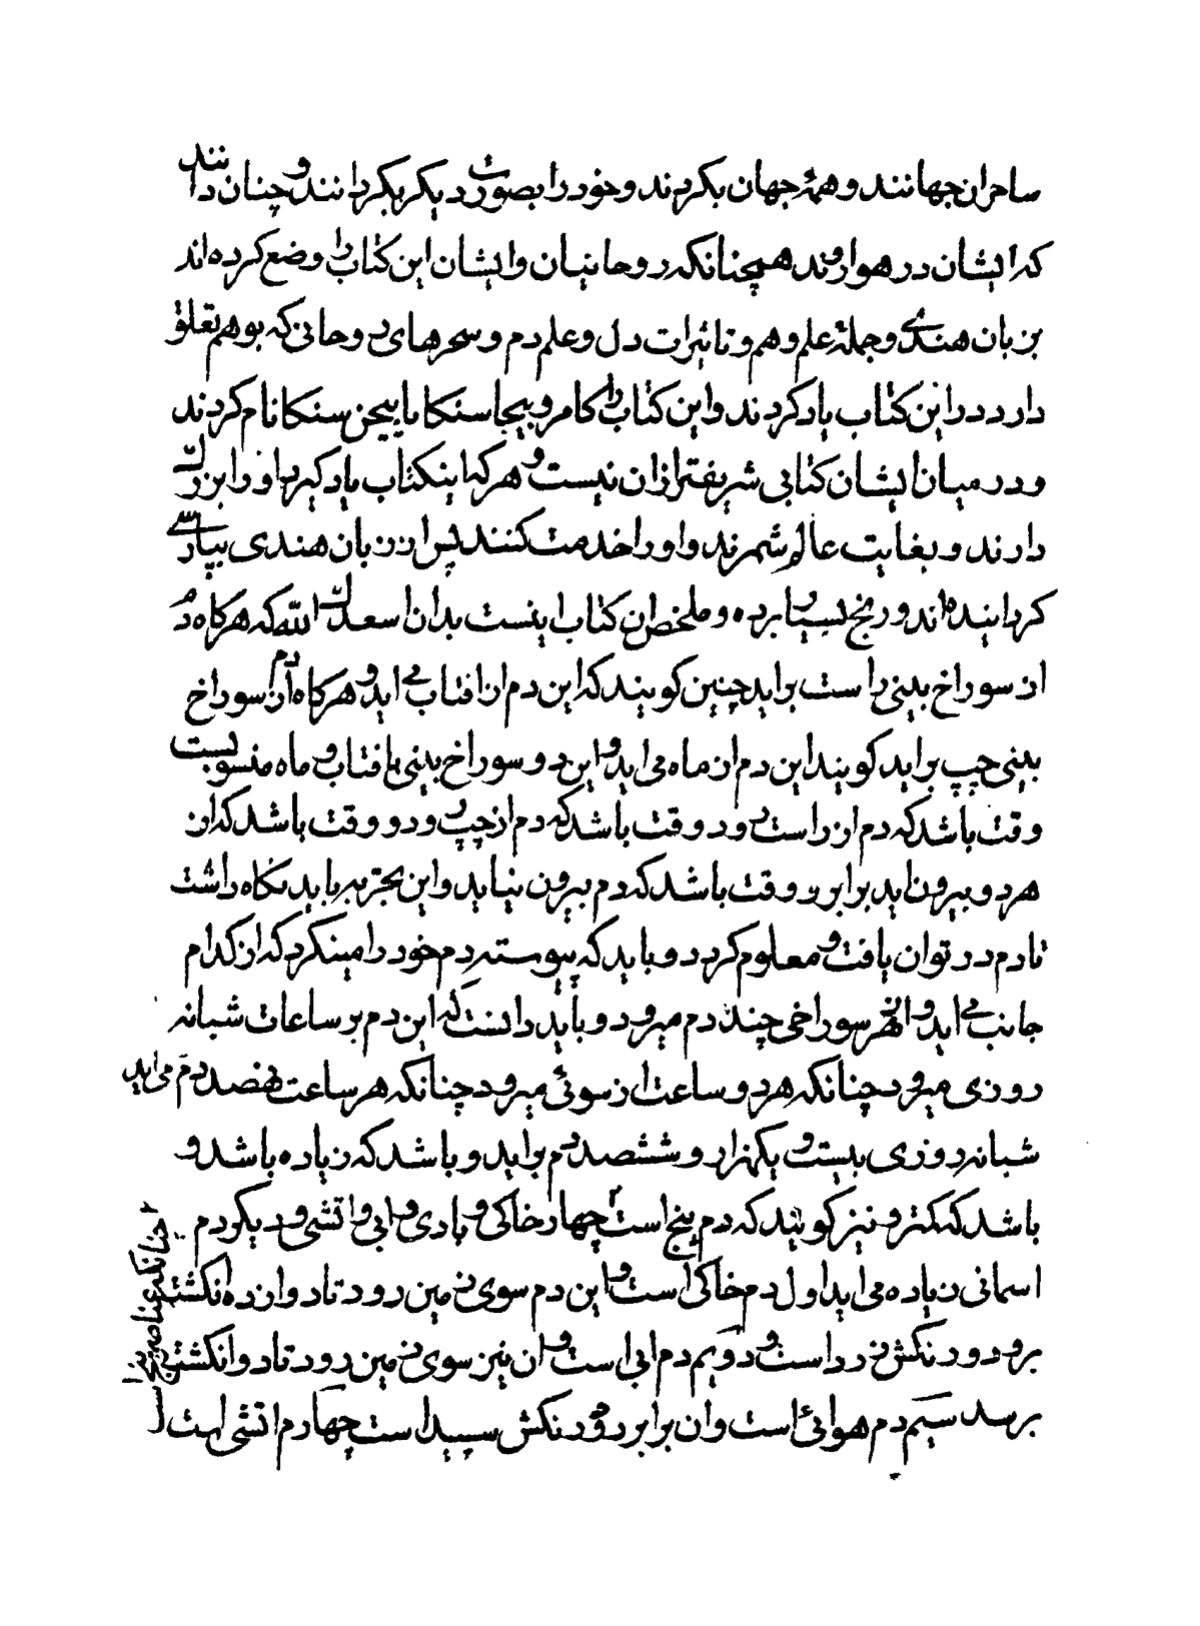 ساحران جهانند و همۀ جهان بکردند و خود را بصورت دیکر بکردانند و چنان دانند
که ایشان در هوا روند همچنانکه روحانیان و ایشان این کتاب را وضع کرده اند
بزبان هندی و جملۀ علم وهم و تاثیرات دل و علم دم و سحرهای روحانی که بوهم تعلق
دارد در این کتاب یاد کردند و این کتاب را کامرو بیجا سنکا یا بیجن سنکا نام کردند
و در میان ایشان کتابی شریفتر ازان نیست و هر که اینکتاب یاد کیرد او را بزرک
دارند و بغایت عالم شمرند و او را خدمت کنند پس از زبان هندی بپارسی
کردانیده اند و رنج بسیار برده و ملخص ان کتاب اینست بدان اسعدک الله که هرکاه دم
از سوراخ بینی راست براید چنین کویند که این دم از افتاب می اید و هرکاه دم از سوراخ
بینی چپ براید کویند این دم از ماه می اید و این دو سوراخ بینی بافتاب و ماه منسوبست
وقت باشد که دم از راست رود و وقت باشد که دم از چپ رود و وقت باشد که از
هر دو بیرون اید برابر و وقت باشد که دم بیرون نیاید و این تجربه باید نکاه داشت
تا دم در توان یافت و معلوم کرد و باید که پیوسته دم خود را مینکرد که از کدام
جانب می اید و از هر سوراخی چند دم میرود و باید دانست که این دم بر ساعات شبانه
روزی میرود چنانکه هر دو ساعت از سوئی میرود چنانکه هر ساعت نهصد دم می اید
شبانه روزی بیست و یکهزار و ششصد دم براید و باشد که زیاده باشد و
باشد که کمتر و نیز کویند که دم پنج است چهار خاکی و بادی و ابی و اتشی و دیکر دم
چنانکه عناصر
اسمانی زیاده می اید اول دم خاکی است و این دم سوی زمین رود تا دوازده انکشت
برود و رنکش زرد است و دویم دم ابی است و ان نیز سوی زمین رود تا دو انکشت
برسد سیم دم هوائی است و ان برابر رود رنکش سپید است چهارم اتشی است